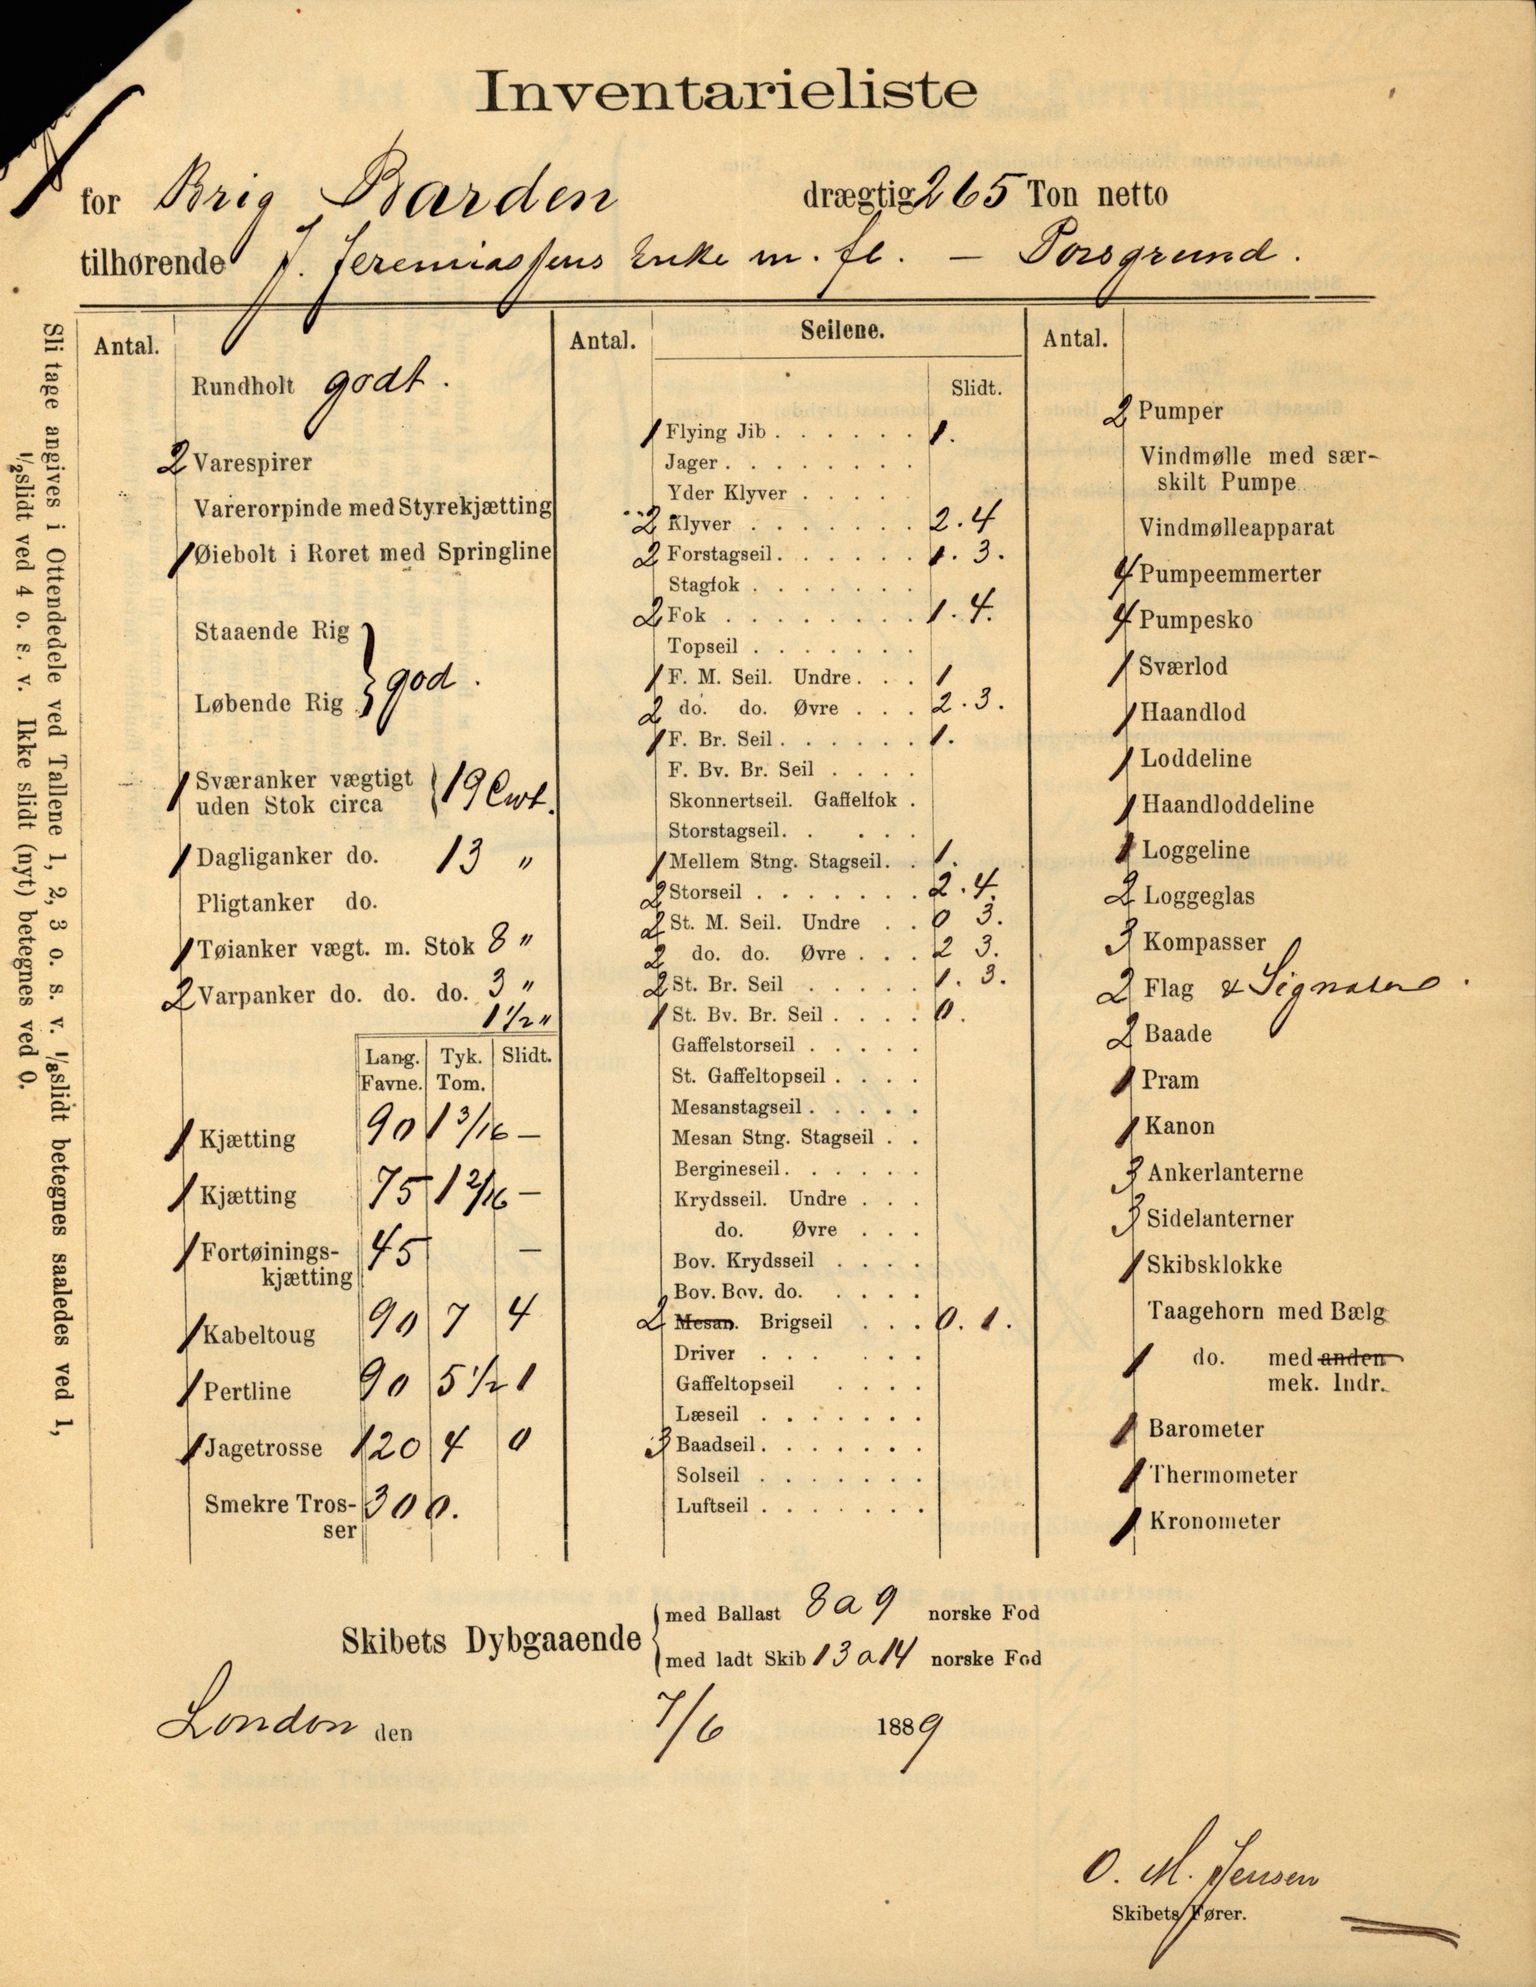 Inventarieliste
for Brig Barden drægtig 265 Ton netto
tilhørende J. Jeremiassens Enke m. fl. — Porsgrund.
Slitage angives i Ottendedele ved Tallene 1, 2, 3 o. s. v. 1/8 slidt betegnes saaledes ved 1,
1/2 slidt ved 4 o. s. v. Ikke slidt (nyt) betegnes ved 0.
Antal.
Rundholt godt.
2 Varespirer
Varerorpinde med Styrekjætting
1 Øiebolt i Roret med Springline
Staaende Rig
} god.
Løbende Rig
1 Sværanker vægtigt
uden Stok circa } 19 Cwt.
1 Dagliganker do. 13 "
Pligtanker do.
1 Tøianker vægt. m. Stok 8 "
2 Varpanker do. do. do. 3 "
1 1/2 "
Lang. Tyk. Slidt.
Favne. Tom.
1 Kjætting 90 1 3/16 —
1 Kjætting 75 1 2/16 —
1 Fortøinings- 45 —
kjætting
1 Kabeltoug 90 7 4
1 Pertline 90 5 1/2 1
1 Jagetrosse 120 4 0
Smekre Tros- 300.
ser
Antal. Seilene.
Slidt.
1 Flying Jib . . . . . . 1.
Jager . . . . . . . .
Yder Klyver . . . . .
2 Klyver . . . . . . . 2. 4
2 Forstagseil . . . . . . 1. 3.
Stagfok . . . . . . .
2 Fok . . . . . . . . 1. 4.
Topseil . . . . . . .
1 F. M. Seil. Undre . . . 1
2 do. do. Øvre . . . 2. 3.
1 F. Br. Seil . . . . . . 1.
F. Bv. Br. Seil . . . .
Skonnertseil. Gaffelfok .
Storstagseil. . . . .
1 Mellem Stng. Stagseil. . 1.
2 Storseil . . . . . . . 2. 4.
2 St. M. Seil. Undre . . 0 3.
2 do. do. Øvre . . . 2 3.
2 St. Br. Seil . . . . . 1. 3.
1 St. Bv. Br. Seil . . . . 0.
Gaffelstorseil . . . . .
St. Gaffeltopseil . . . .
Mesanstagseil . . . . .
Mesan Stng. Stagseil . .
Bergineseil . . . . . .
Krydsseil. Undre . . .
do. Øvre . . .
Bov. Krydsseil . . . .
Bov. Bov. do. . . . .
2 Mesan. Brigseil . . . 0. 1.
Driver . . . . . .
Gaffeltopseil . . . .
Læseil . . . . . . .
3 Baadseil . . . . . . .
Solseil . . . . . . .
Luftseil . . . . . . .
Antal.
2 Pumper
Vindmølle med sær-
skilt Pumpe
Vindmølleapparat
4 Pumpeemmerter
4 Pumpesko
1 Sværlod
1 Haandlod
1 Loddeline
1 Haandloddeline
1 Loggeline
2 Loggeglas
3 Kompasser
2 Flag & Signaler.
2 Baade
1 Pram
1 Kanon
3 Ankerlanterne
3 Sidelanterner
1 Skibsklokke
Taagehorn med Bælg
1 do. med anden
mek. Indr.
1 Barometer
1 Thermometer
1 Kronometer
Skibets Dybgaaende { med Ballast 8 a 9 norske Fod
med ladt Skib 13 a 14 norske Fod
London den 7/6 1889
O. M. Jensen
Skibets Fører.